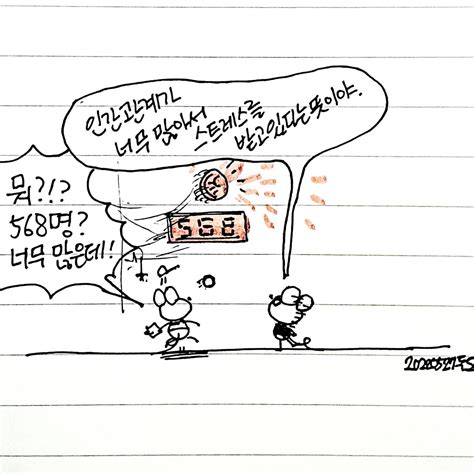 인간관계가
너무 많아서 스트레스를
받고있다는뜻이야.
뭐?!?
568명?
너무 많은데!
568